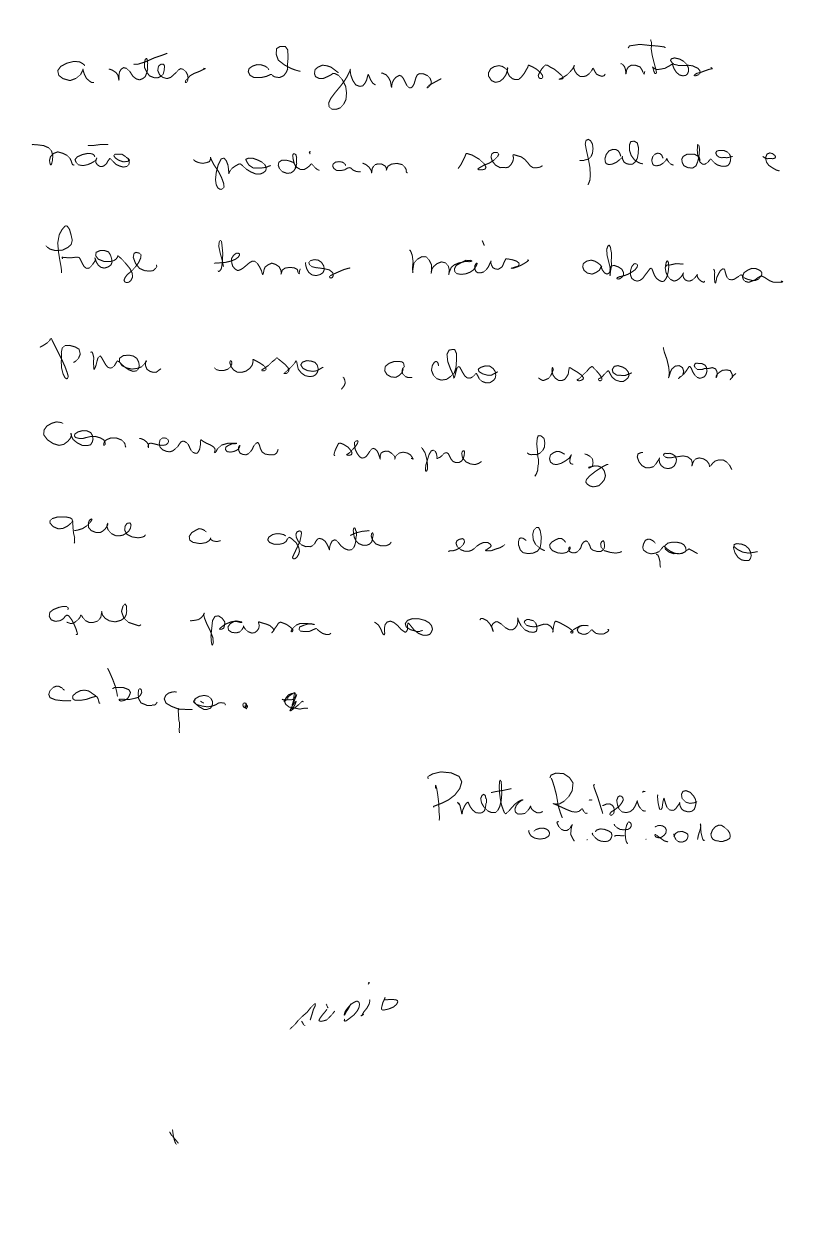 antes alguns assuntos
não podiam ser falado e
hoje temos mais abertura
pra isso, acho isso bom
conversar sempre faz com
que a gente esclareça o
que passa na nossa
cabeça.
Preta Ribeiro
04.07.2010
AUDIO